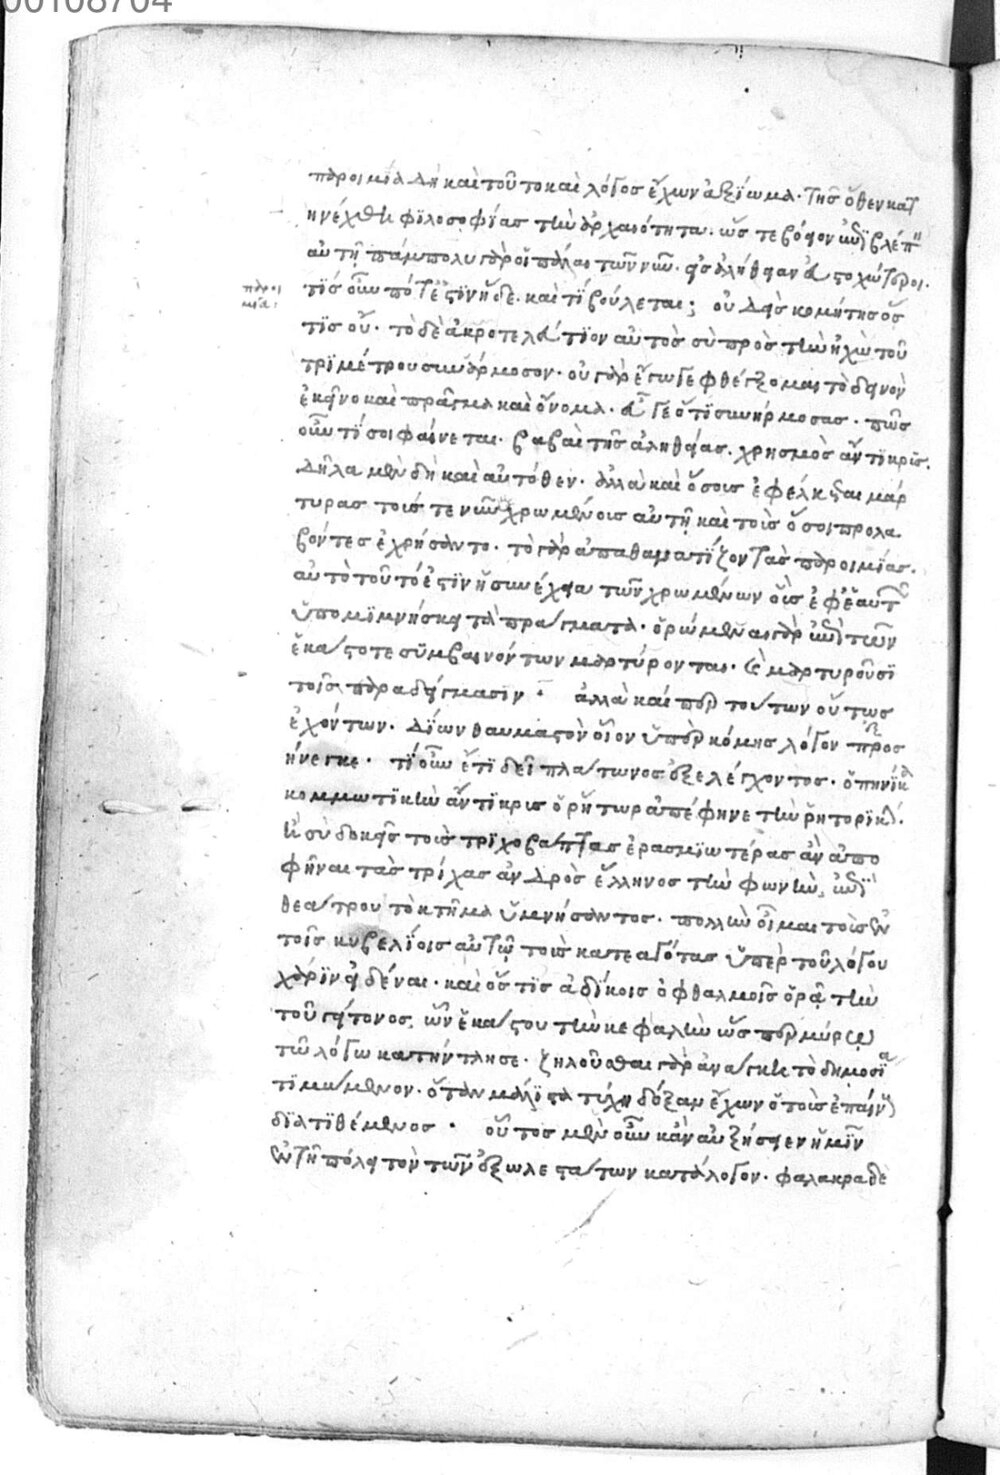 00108704
παροιμία δὴ καὶ τοῦτο καὶ λόγος ἔχων ἀξίωμα. τῆς ὅθεν κατ
ηνέχθη φιλοσοφίας τὴν ἀρχαιότητα. ὥστε βόειον ἐπιβλέπειν
αὐτῇ πάμπολυ γὰρ οἱ πάλαι τῶν νῦν. εἰς ἀλήθειαν εὐστοχώτεροι.
παροι
μία:
τίς οὖν ποτέ ἐστιν ἥδε. καὶ τί βούλεται; οὐδεὶς κομήτης ὅς
τις οὐ. τὸ δὲ ἀκροτελεύτιον αὐτὸς σὺ πρὸς τὴν ἠχὼ τοῦ
τριμέτρου συνάρμοσον. οὐ γὰρ ἔγωγε φθέγξομαι τὸ δεινὸν
ἐκεῖνο καὶ πρᾶγμα καὶ ὄνομα. εὖ γε ὅτι συνήρμοσας. πῶς
οὖν τί σοι φαίνεται. βαβαὶ τῆς ἀληθείας. χρησμὸς ἄντικρις.
δῆλα μὲν δὴ καὶ αὐτόθεν. ἀλλὰ καὶ ὅσοις ἐφέλκεται μάρ
τυρας τοῖς τε νῦν χρωμένοις αὐτῇ καὶ τοῖς ὅσοι προλα
βόντες ἐχρήσαντο. τὸ γὰρ ἀπαθανατίζον τὰς παροιμίας.
αὐτὸ τοῦτό ἐστιν ἡ συνέχεια τῶν χρωμένων οἷς ἐφ' ἑαυτ
ὑπομιμνήσκει τὰ πράγματα. ὁρώμεναι γὰρ ἐπὶ τῶν
ἑκάστοτε συμβαινόντων μαρτύρονται. καὶ μαρτυροῦσι
τοῖς παραδείγμασιν. ἀλλὰ καὶ περ τούτων οὕτως
ἐχόντων. δίων θαυμαστὸν οἷον ὑπὲρ κόμης λόγον προς
ήνεγκε. τί οὖν ἔτι δεῖ πλάτωνος ἐξελέγχοντος. ὁπηνίκα
κομμωτικὴν ἄντικρις ὁ ῥήτωρ ἀπέφηνε τὴν ῥητορικήν.
ἢ σὺ δοκεῖς τοὺς τριχοβάπτας ἐρασμιωτέρας ἂν ἀπο
φῆναι τὰς τρίχας ἀνδρὸς ἕλληνος τὴν φωνὴν, ἐπὶ
θεάτρου τὸ κτῆμα ὑμνήσαντος. πολλὴν οἶμαι τοὺς ἐν
τοῖς κυβελίοις αὐτῷ τοὺς κατεαγότας ὑπὲρ τοῦ λόγου
χάριν εἰδέναι. καὶ ὅστις ἀδίκοις ὀφθαλμοῖς ὁρᾷ τὴν
τοῦ γείτονος, ὧν ἑκάστου τὴν κεφαλὴν ὥσπερ μύρῳ
τῷ λόγῳ κατήντλησε. ζηλοῦσθαι γὰρ ἀνάγκη τὸ δημοσίᾳ
τιμώμενον. ὅταν μάλιστα τύχῃ δόξαν ἔχων ὁ τοὺς ἐπαίνους
διατιθέμενος. οὗτος μὲν οὖν κἂν αὐξήσειεν ἡμῖν
ἐν τῇ πόλει τὸν τῶν ἐξωλεστάτων κατάλογον. φαλακρὰ δὲ